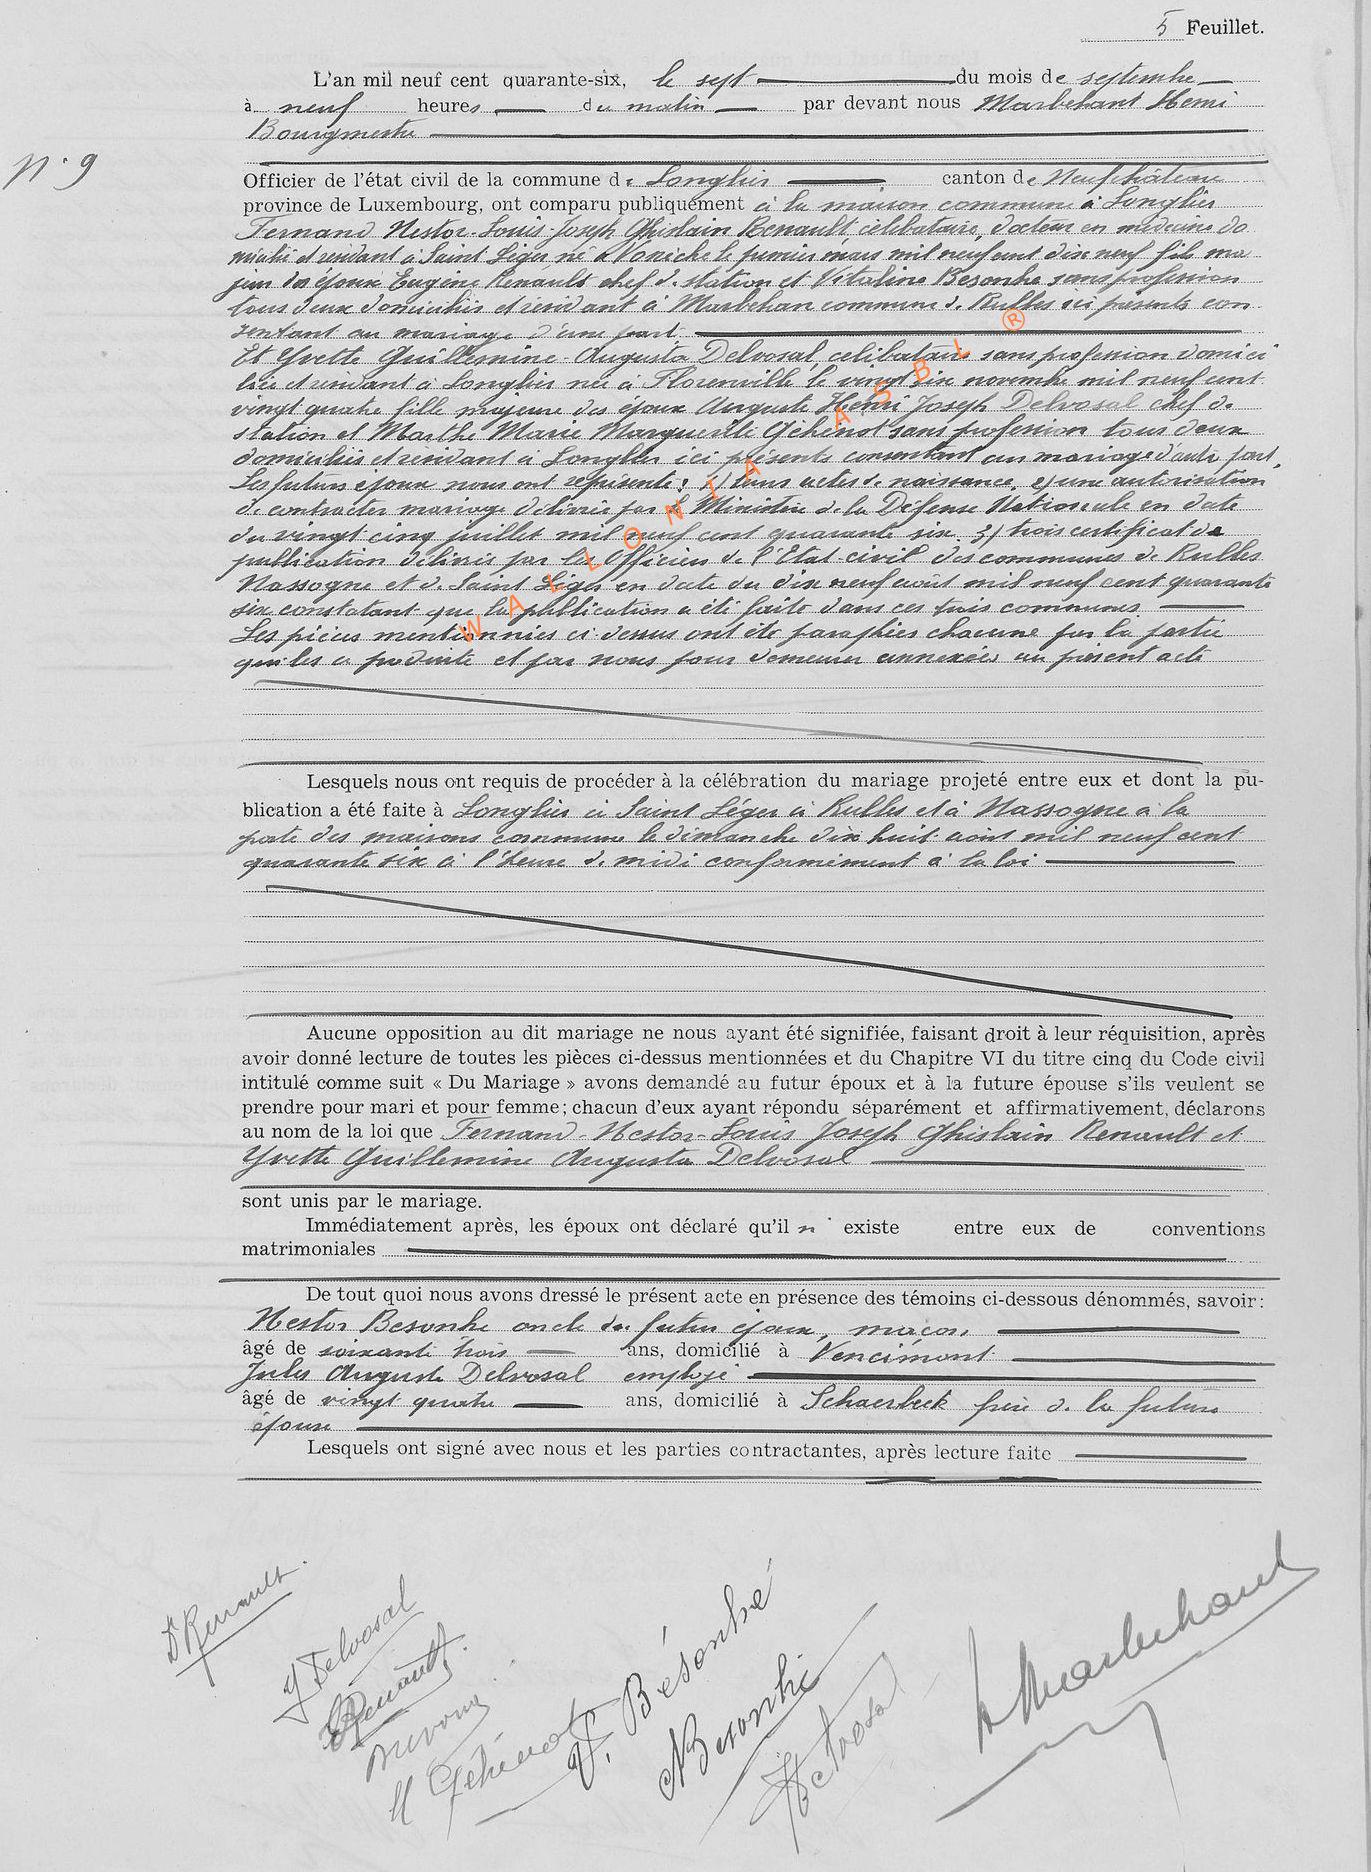 5 Feuillet.
L'an mil neuf cent quarante-six, le sept du mois de septembre
à neuf heures du matin par devant nous Marbehant Henri
Bourgmestre
N° 9
Officier de l'état civil de la commune de Longlier canton de Neufchâteau
province de Luxembourg, ont comparu publiquement à la maison commune à Longlier
Fernand Nestor-Louis-Joseph Ghislain Renault, célibataire, docteur en médecine do
micilié et résidant à Saint Léger né à Vonêche le premier mars mil neuf cent dix neuf fils ma
jeur des époux Eugène Renault chef de station et Vitaline Besonhe sans profession
tous deux domiciliés et résidant à Marbehan commune de Rulles ici présents con
sentant au mariage d'une part
Et Yvette Guillemine Augusta Delvosal célibataire sans profession domici
liée et résidant à Longlier née à Florenville le vingt six novembre mil neuf cent
vingt quatre fille majeure des époux Auguste Henri Joseph Delvosal chef de
station et Marthe Marie Marguerite Gehénot sans profession tous deux
domiciliés et résidant à Longlier ici présents consentant au mariage d'autre part.
Les futurs époux nous ont représenté: 1) leurs actes de naissance, 2) une autorisation
de contracter mariage délivrée par le Ministère de la Défense Nationale en date
du vingt cinq juillet mil neuf cent quarante six. 3) trois certificat de
publication délivrés par les Officiers de l'Etat civil des communes de Rulles
Nassogne et de Saint Léger en date du dix neuf août mil neuf cent quarante
six constatant que la publication a été faite dans ces trois communes.
Les pièces mentionnées ci-dessus ont été paraphées chacune par la partie
qui les a produite et par nous pour demeurer annexées au présent acte
WALLONIA ASBL ®
Lesquels nous ont requis de procéder à la célébration du mariage projeté entre eux et dont la pu-
blication a été faite à Longlier à Saint Léger à Rulles et à Nassogne à la
porte des maisons commune le dimanche dix huit août mil neuf cent
quarante six à l'heure de midi conformément à la loi
Aucune opposition au dit mariage ne nous ayant été signifiée, faisant droit à leur réquisition, après
avoir donné lecture de toutes les pièces ci-dessus mentionnées et du Chapitre VI du titre cinq du Code civil
intitulé comme suit « Du Mariage » avons demandé au futur époux et à la future épouse s'ils veulent se
prendre pour mari et pour femme; chacun d'eux ayant répondu séparément et affirmativement, déclarons
au nom de la loi que Fernand-Nestor-Louis Joseph Ghislain Renault et
Yvette Guillemine Augusta Delvosal
sont unis par le mariage.
Immédiatement après, les époux ont déclaré qu'il n' existe entre eux de conventions
matrimoniales
De tout quoi nous avons dressé le présent acte en présence des témoins ci-dessous dénommés, savoir:
Nestor Besonhe oncle du futur époux, maçon,
âgé de soixante trois ans, domicilié à Vencimont
Jules Auguste Delvosal employé
âgé de vingt quatre ans, domicilié à Schaerbeek frère de la future
épouse
Lesquels ont signé avec nous et les parties contractantes, après lecture faite
Dr Renault
Y Delvosal
ERenault
M Gehénot
V. Bésonhé
NBesonhe
Delvosal
H Marbehant